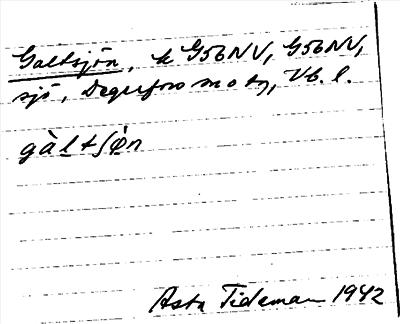 Galtsjön, k G56NV, G56NV,
sjö, Degerfors m o tg, Vb. l.
gàltʃø̀n
Asta Tideman 1942